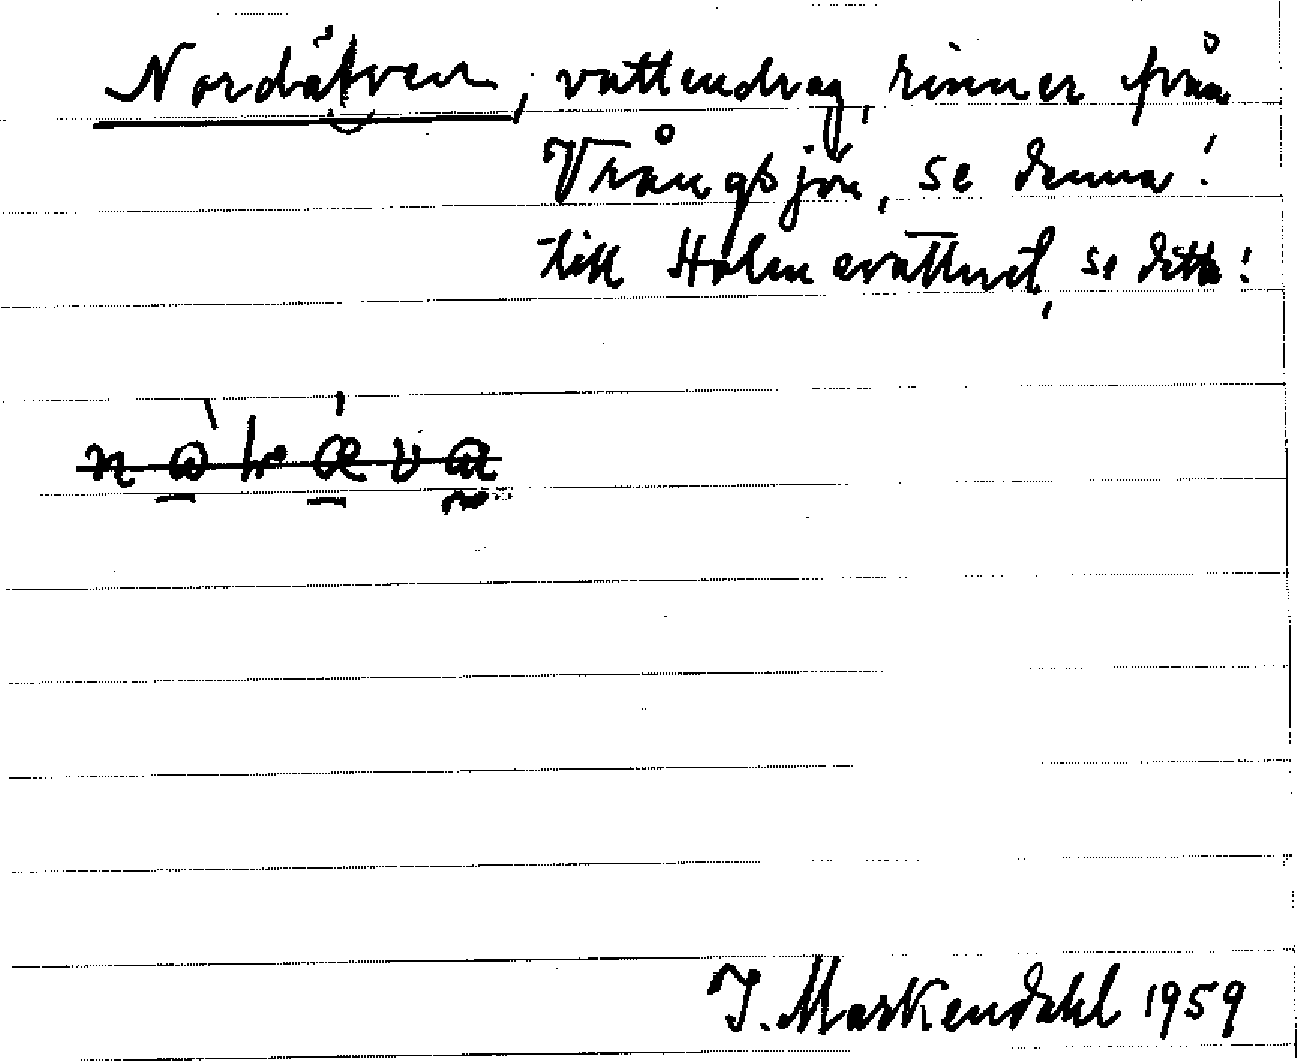 Nordälven, vattendrag, rinner från
Vrångsjön, se denna!
till Holmevattnet, se detta!
J. Markendahl 1959